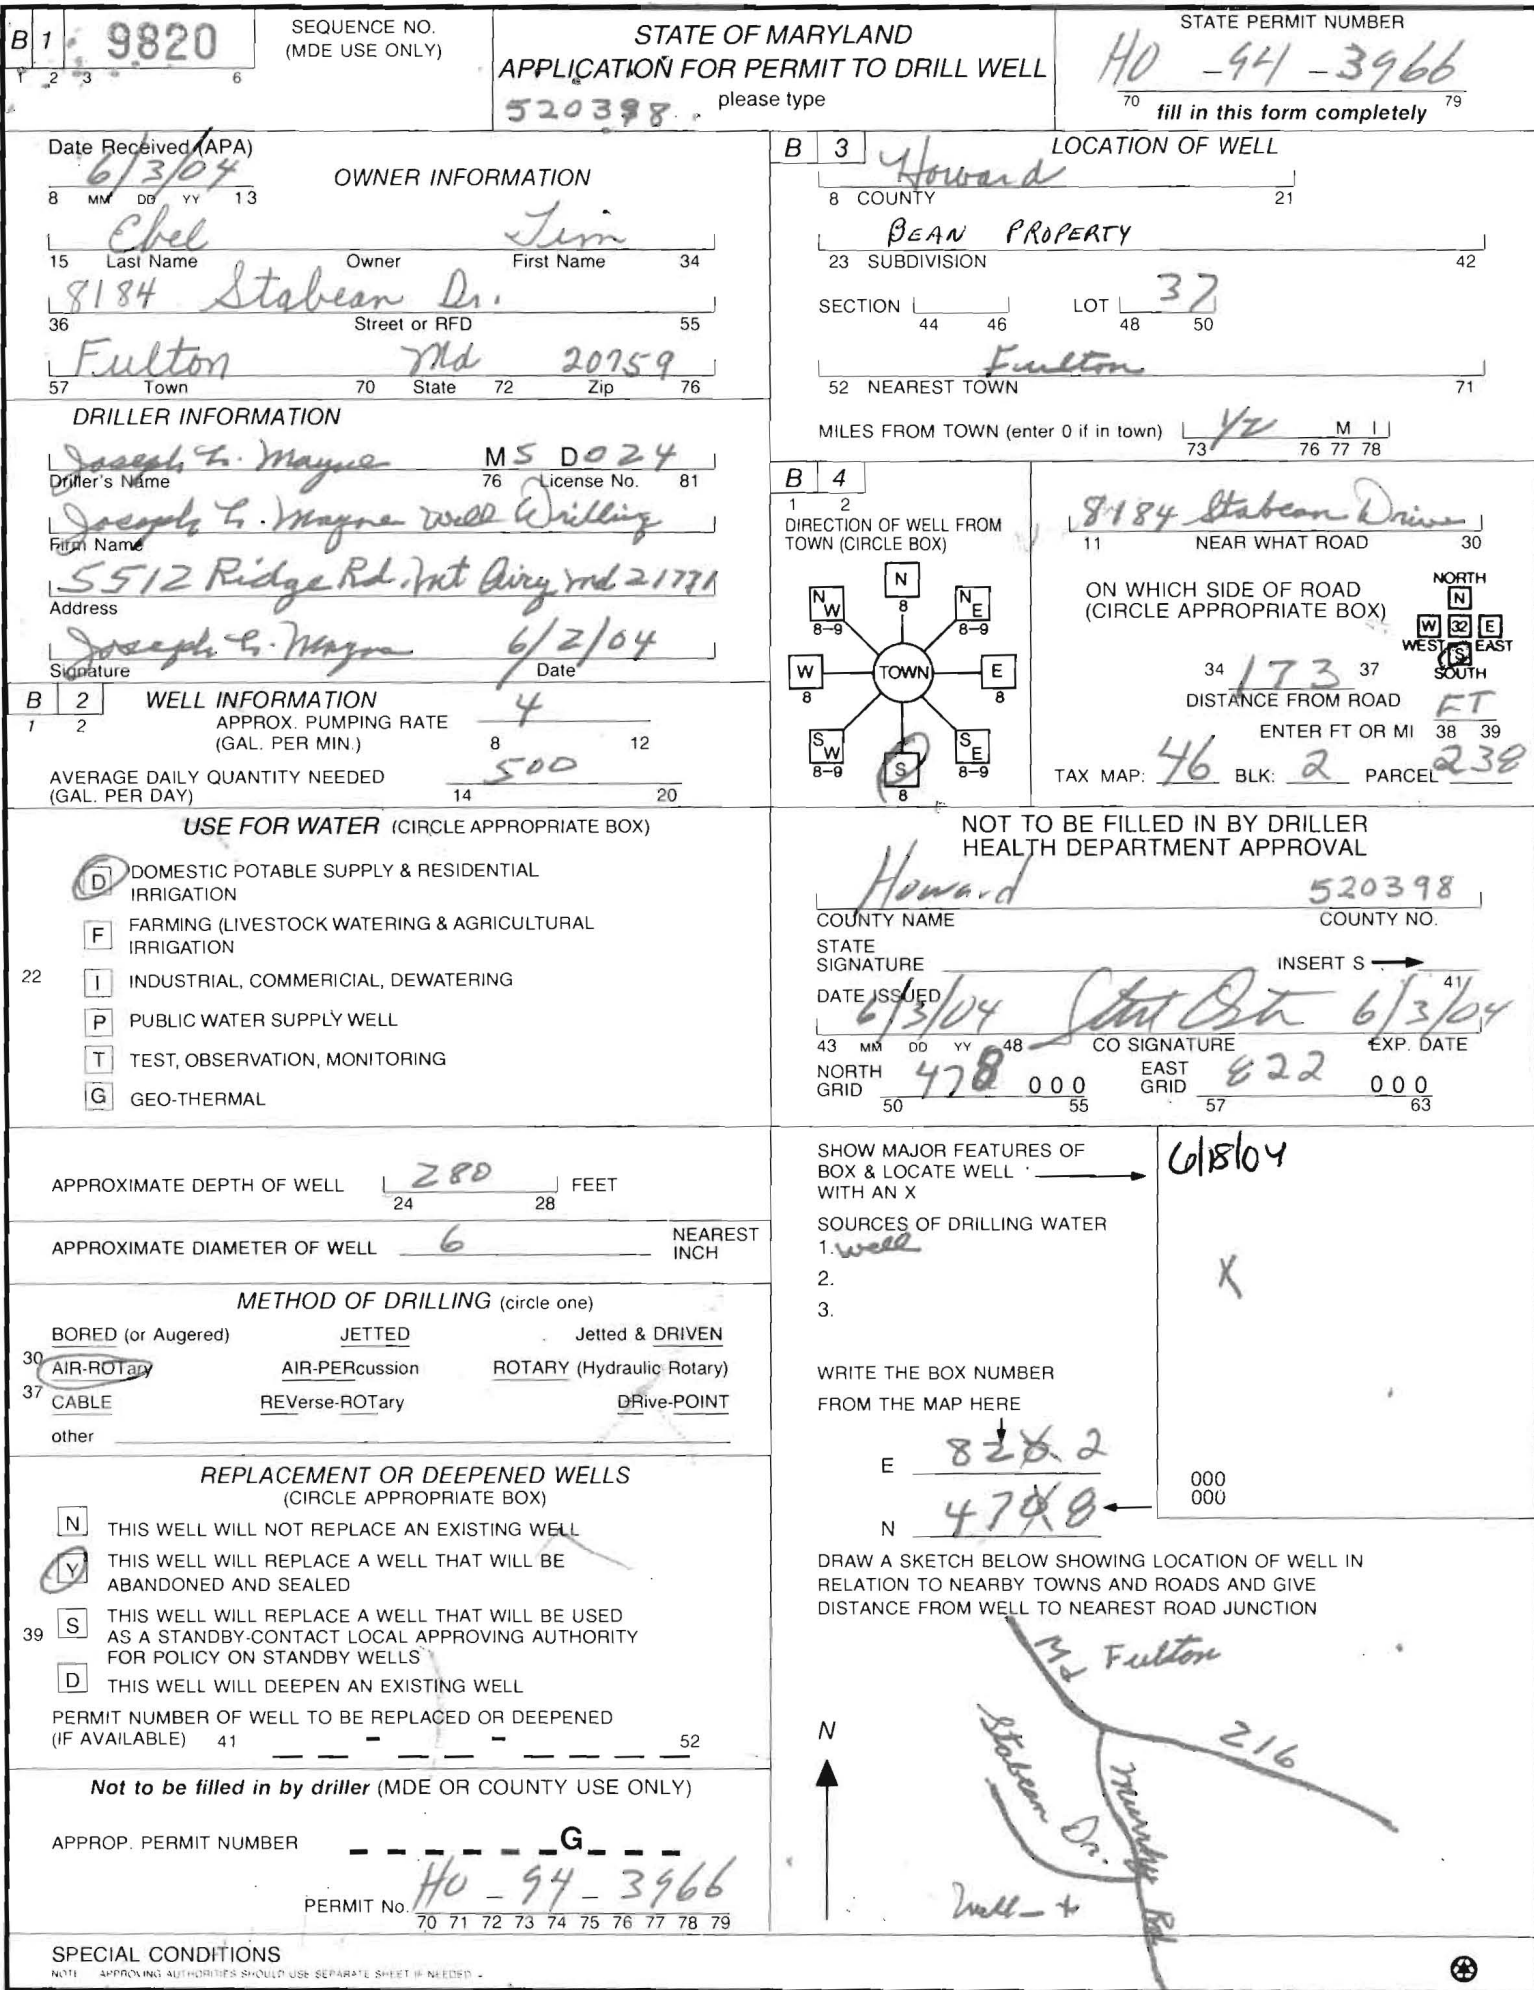 B 1 9820 SEQUENCE NO. (MDE USE ONLY)
1 2 3 6
STATE OF MARYLAND
APPLICATION FOR PERMIT TO DRILL WELL
520398 please type
STATE PERMIT NUMBER
HO - 94 - 3966
70 fill in this form completely 79
Date Received (APA)
6/3/04
8 MM DD YY 13
OWNER INFORMATION
Ebel Tim
15 Last Name Owner First Name 34
8184 Stabean Dr.
36 Street or RFD 55
Fulton Md 20759
57 Town 70 State 72 Zip 76
DRILLER INFORMATION
Joseph L. Mayne M S D 0 2 4
Driller's Name 76 License No. 81
Joseph L. Mayne Well Drilling
Firm Name
5512 Ridge Rd. Mt Airy Md 21771
Address
Joseph L. Mayne 6/2/04
Signature Date
B 2 WELL INFORMATION
1 2
APPROX. PUMPING RATE 4
(GAL. PER MIN.) 8 12
AVERAGE DAILY QUANTITY NEEDED 500
(GAL. PER DAY) 14 20
USE FOR WATER (CIRCLE APPROPRIATE BOX)
D DOMESTIC POTABLE SUPPLY & RESIDENTIAL
IRRIGATION
F FARMING (LIVESTOCK WATERING & AGRICULTURAL
IRRIGATION
22 I INDUSTRIAL, COMMERICIAL, DEWATERING
P PUBLIC WATER SUPPLY WELL
T TEST, OBSERVATION, MONITORING
G GEO-THERMAL
APPROXIMATE DEPTH OF WELL 280 FEET
24 28
APPROXIMATE DIAMETER OF WELL 6 NEAREST INCH
METHOD OF DRILLING (circle one)
BORED (or Augered) JETTED Jetted & DRIVEN
30 AIR-ROTary AIR-PERcussion ROTARY (Hydraulic Rotary)
37 CABLE REVerse-ROTary DRive-POINT
other
REPLACEMENT OR DEEPENED WELLS
(CIRCLE APPROPRIATE BOX)
N THIS WELL WILL NOT REPLACE AN EXISTING WELL
Y THIS WELL WILL REPLACE A WELL THAT WILL BE
ABANDONED AND SEALED
39 S THIS WELL WILL REPLACE A WELL THAT WILL BE USED
AS A STANDBY-CONTACT LOCAL APPROVING AUTHORITY
FOR POLICY ON STANDBY WELLS
D THIS WELL WILL DEEPEN AN EXISTING WELL
PERMIT NUMBER OF WELL TO BE REPLACED OR DEEPENED
(IF AVAILABLE) 41 - - 52
Not to be filled in by driller (MDE OR COUNTY USE ONLY)
APPROP. PERMIT NUMBER G
PERMIT No. HO - 94 - 3966
70 71 72 73 74 75 76 77 78 79
SPECIAL CONDITIONS
NOTE APPROVING AUTHORITIES SHOULD USE SEPARATE SHEET IF NEEDED
B 3 LOCATION OF WELL
Howard
8 COUNTY 21
BEAN PROPERTY
23 SUBDIVISION 42
SECTION LOT 37
44 46 48 50
Fulton
52 NEAREST TOWN 71
MILES FROM TOWN (enter 0 if in town) 1/2 M I
73 76 77 78
B 4
1 2
DIRECTION OF WELL FROM
TOWN (CIRCLE BOX)
N
8
NW NE
8-9 8-9
W TOWN E
8 8
SW SE
8-9 8-9
S
8
8184 Stabean Drive
11 NEAR WHAT ROAD 30
ON WHICH SIDE OF ROAD
(CIRCLE APPROPRIATE BOX)
NORTH
N
W 32 E
WEST S EAST
SOUTH
34 173 37
DISTANCE FROM ROAD FT
ENTER FT OR MI 38 39
TAX MAP: 46 BLK: 2 PARCEL 238
NOT TO BE FILLED IN BY DRILLER
HEALTH DEPARTMENT APPROVAL
Howard 520398
COUNTY NAME COUNTY NO.
STATE
SIGNATURE INSERT S
41
DATE ISSUED
6/3/04 6/3/04
43 MM DD YY 48 CO SIGNATURE EXP. DATE
NORTH GRID 478 000 EAST GRID 822 000
50 55 57 63
SHOW MAJOR FEATURES OF
BOX & LOCATE WELL
WITH AN X
6/18/04
X
SOURCES OF DRILLING WATER
1. well
2.
3.
WRITE THE BOX NUMBER
FROM THE MAP HERE
E 82 2
N 47 8
000
000
DRAW A SKETCH BELOW SHOWING LOCATION OF WELL IN
RELATION TO NEARBY TOWNS AND ROADS AND GIVE
DISTANCE FROM WELL TO NEAREST ROAD JUNCTION
Md Fulton
216
N
Stabean Dr.
Murphy Rd
Well - +